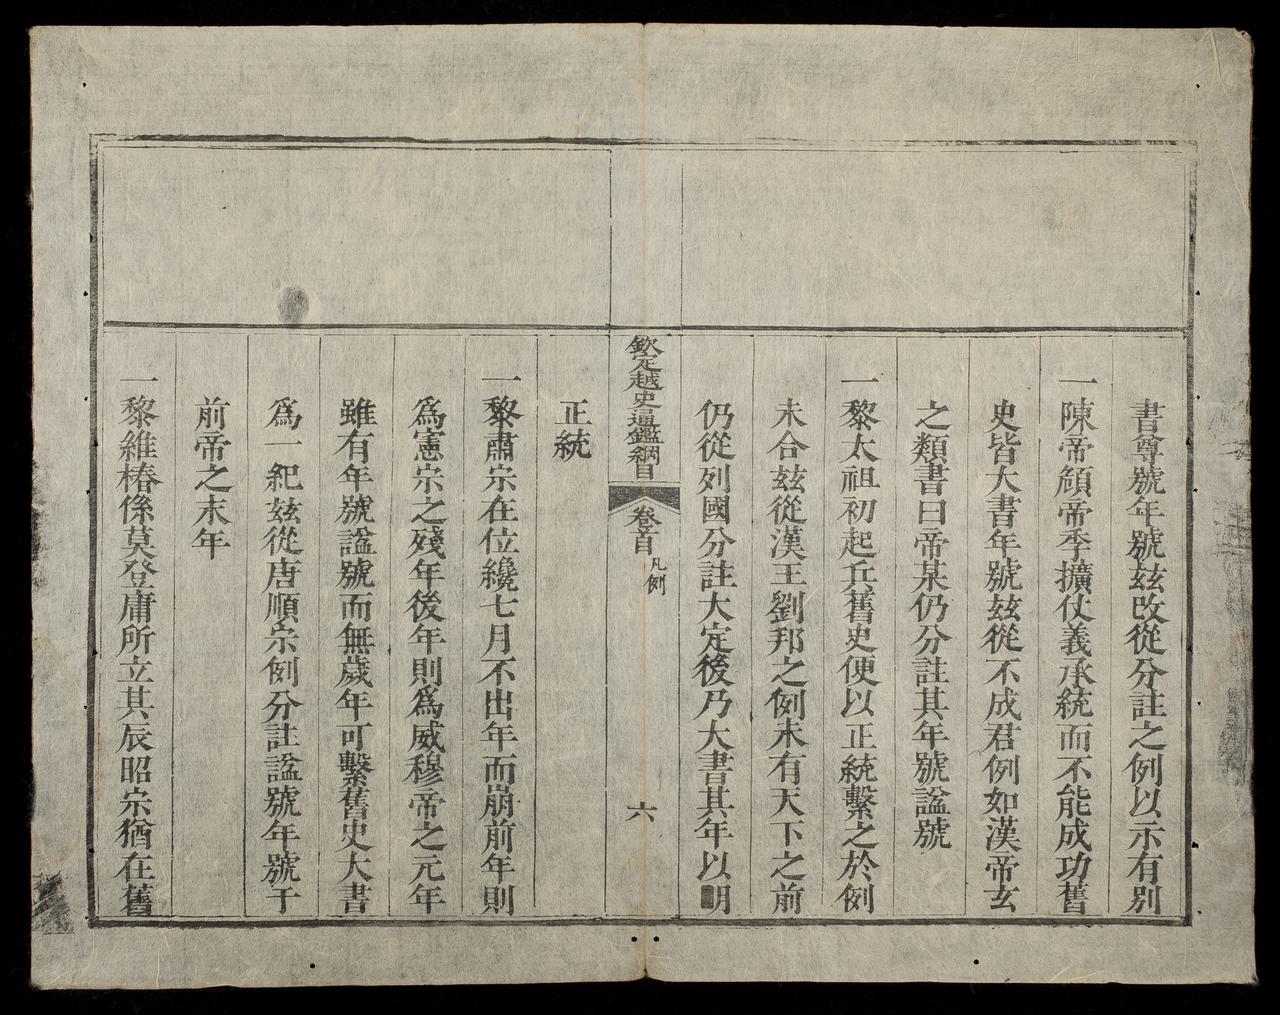 書尊號年號玆改從分註之例以示有別
一陳帝頠帝季擴仗義承統而不能成功舊
史皆大書年號玆從不成君例如漢帝玄
之類書曰帝某仍分註其年號謚號
一黎太祖初起兵舊史便以正統繫之於例
未合玆從漢王劉邦之例未有天下之前
仍從列國分註大定後乃大書其年以明
欽定越史通鑑綱目
卷首
凡例
六
正統
一黎肅宗在位纔七月不出年而崩前年則
爲憲宗之殘年後年則爲威穆帝之元年
雖有年號謚號而無歲年可繫舊史大書
爲一紀玆從唐順宗例分註謚號年號于
前帝之末年
一黎維椿係莫登庸所立其辰昭宗猶在舊